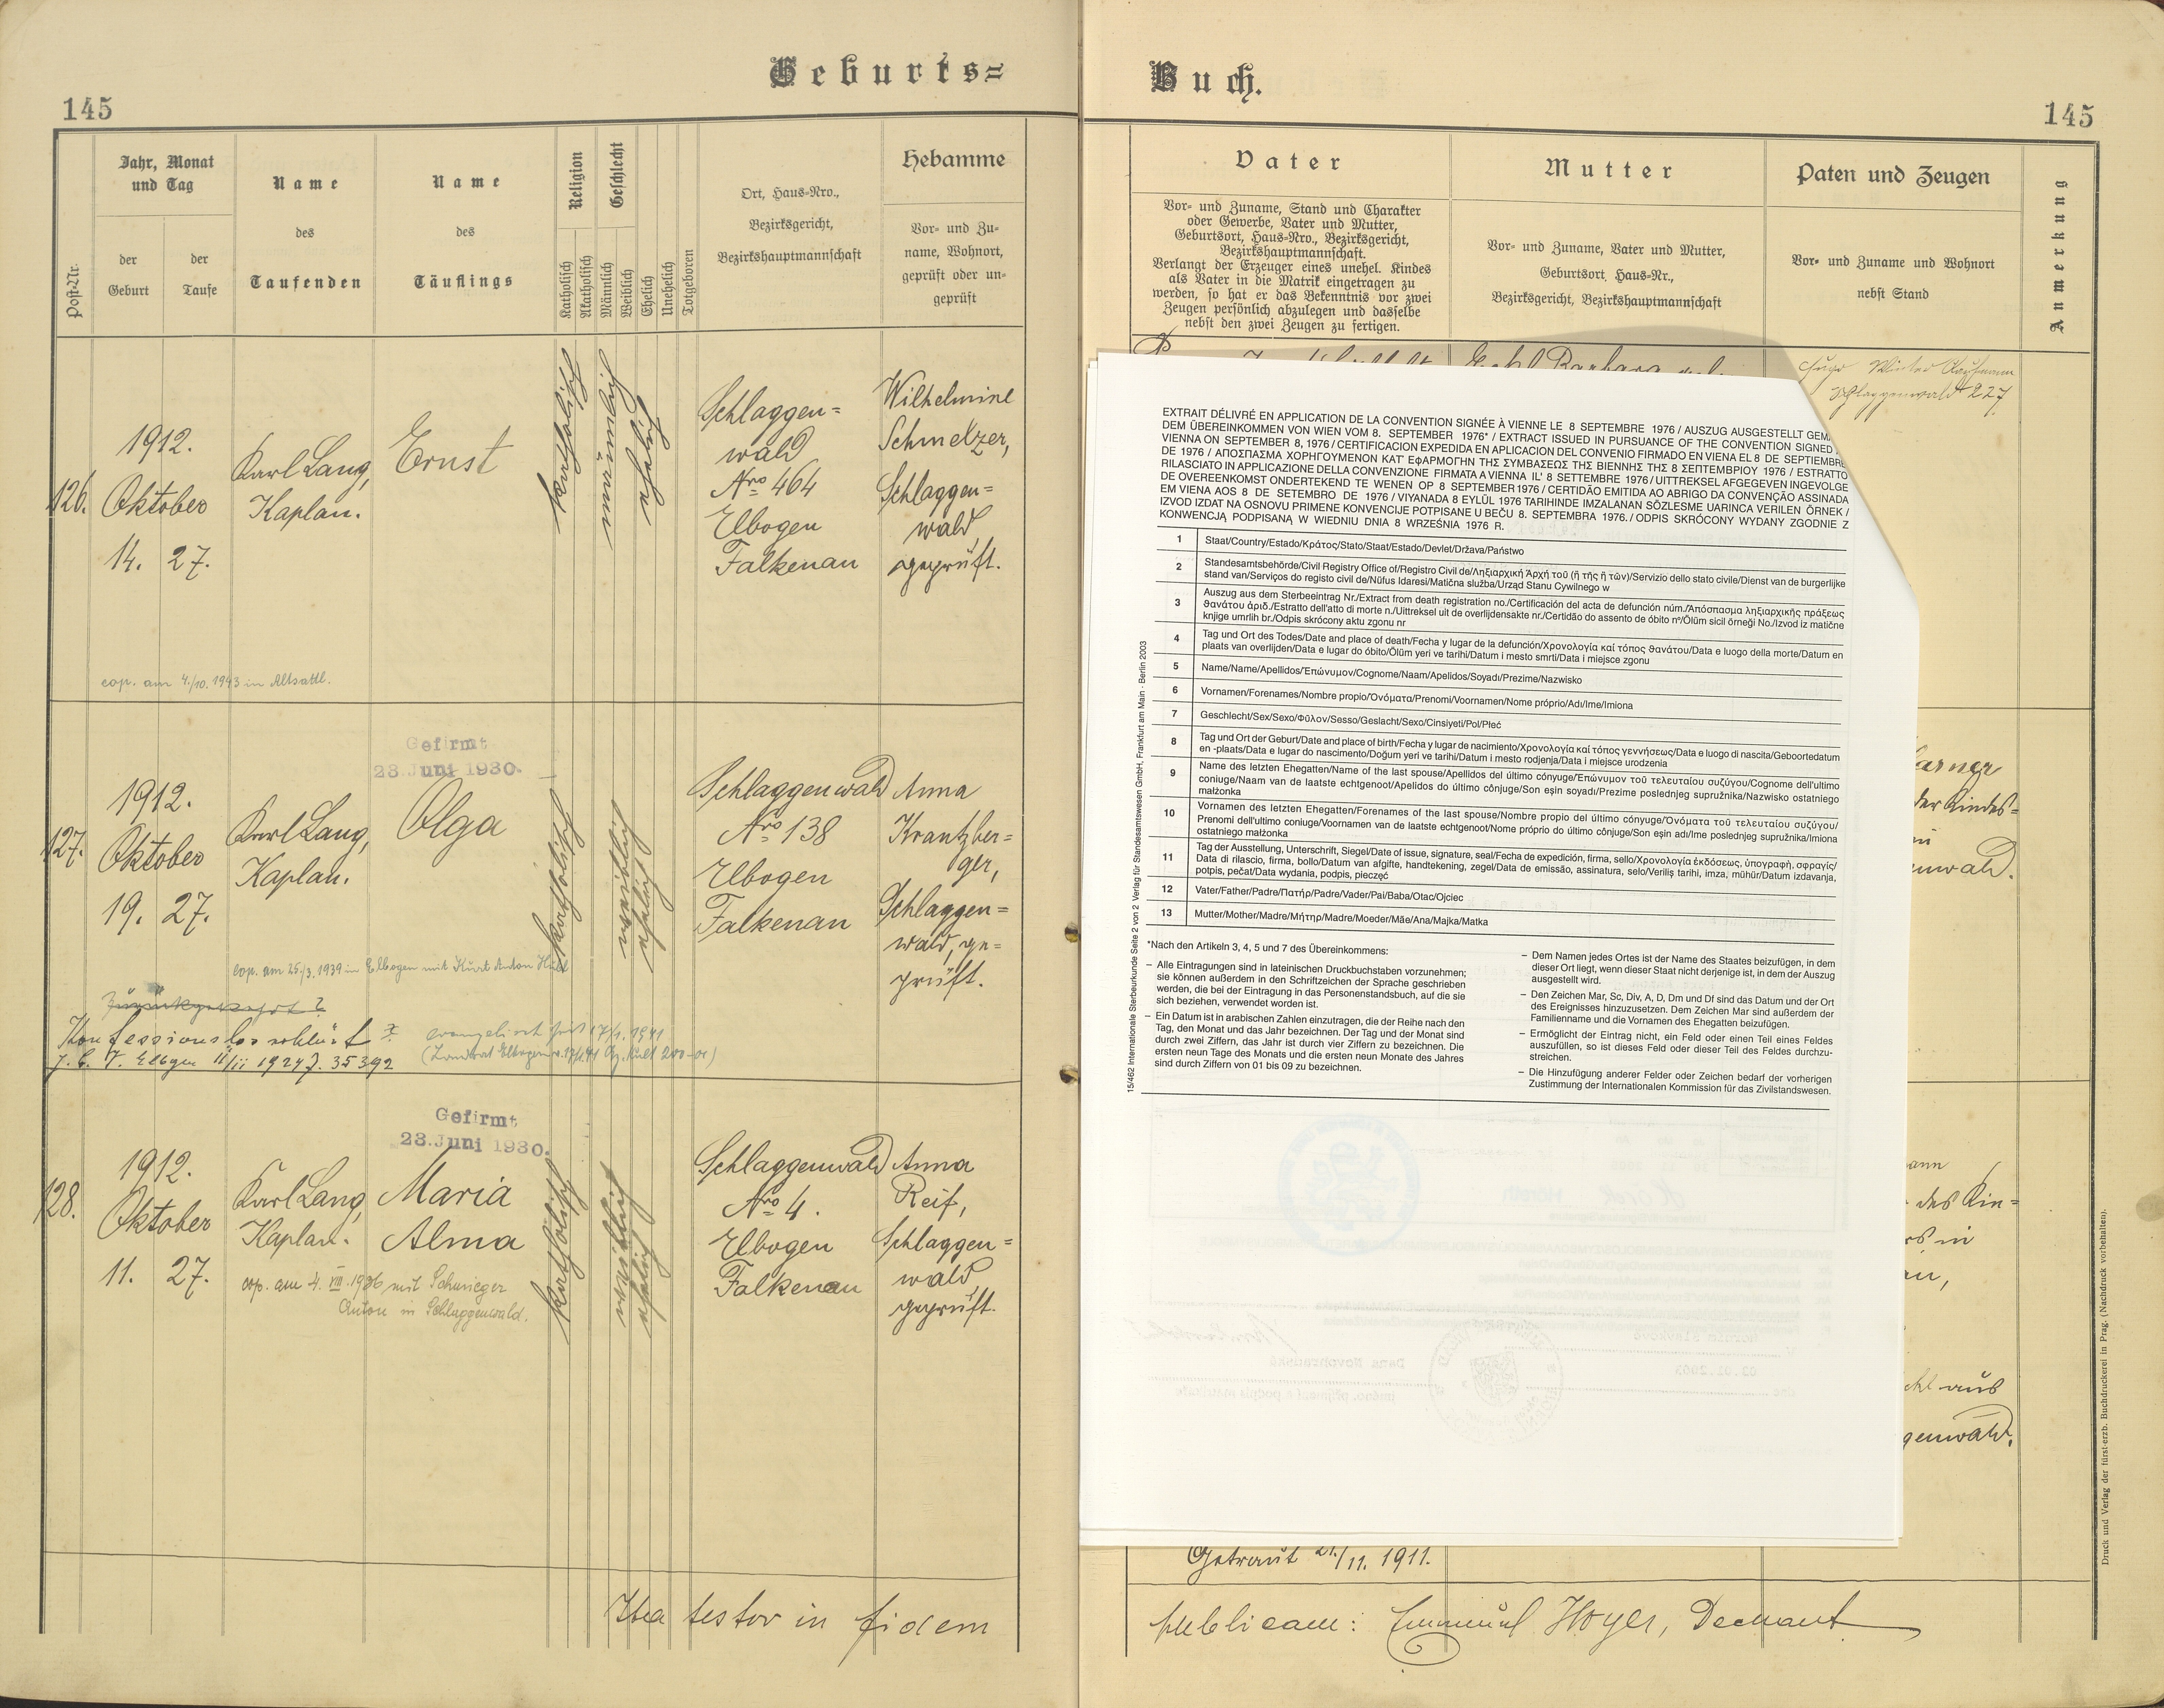 Geburts=
145
Post-Nr.
Jahr, Monat
und Tag
der
Geburt
der
Taufe
Name
des
Taufenden
Name
des
Täuflings
Religion
Katholisch
Akatholisch
Geschlecht
Männlich
Weiblich
Ehelich
Unehelich
Totgeboren
Ort, Haus-Nro.,
Bezirksgericht,
Bezirkshauptmannschaft
Hebamme
Vor- und Zu-
name, Wohnort,
geprüft oder un-
geprüft
126.
1912.
Oktober
14. 27.
Karl Lang,
Kaplan.
Ernst
katholisch
männlich
ehelich
Schlaggen=
wald
Nro 464
Elbogen
Falkenau
Wilhelmine
Schmelzer,
Schlaggen=
wald,
geprüft.
cop. am 4./10. 1943 in Altsattl.
127.
1912.
Oktober
19. 27.
Karl Lang,
Kaplan.
Gefirmt
23. Juni 1930.
Olga
katholisch
weiblich
ehelich
Schlaggenwald
Nro 138
Elbogen
Falkenau
Anna
Krantzber=
ger,
Schlaggen=
wald, ge=
prüft.
cop. am 25./3. 1939 in Elbogen mit Kurt Anton
Konfessionslos erklärt
evangelisch seit 17/1. 1941
128.
1912.
Oktober
11. 27.
Karl Lang,
Kaplan.
Gefirmt
23. Juni 1930.
Maria
Alma
katholisch
weiblich
ehelich
Schlaggenwald
Nro 4.
Elbogen
Falkenau
Anna
Reif,
Schlaggen=
wald,
geprüft.
cop. am 4. VIII. 1936 mit Schwieger
Anton in Schlaggenwald.
Ita testor in fidem
Buch.
145
Vater
Vor- und Zuname, Stand und Charakter
oder Gewerbe, Vater und Mutter,
Geburtsort, Haus-Nro., Bezirksgericht,
Bezirkshauptmannschaft.
Verlangt der Erzeuger eines unehel. Kindes
als Vater in die Matrik eingetragen zu
werden, so hat er das Bekenntnis vor zwei
Zeugen persönlich abzulegen und dasselbe
nebst den zwei Zeugen zu fertigen.
Mutter
Vor- und Zuname, Vater und Mutter,
Geburtsort, Haus-Nr.,
Bezirksgericht, Bezirkshauptmannschaft
Paten und Zeugen
Vor- und Zuname und Wohnort
nebst Stand
Anmerkung
Barbara
Hugo Winter Kaufmann
Schlaggenwald 227
EXTRAIT DÉLIVRÉ EN APPLICATION DE LA CONVENTION SIGNÉE À VIENNE LE 8 SEPTEMBRE 1976 / AUSZUG AUSGESTELLT GEM
DEM ÜBEREINKOMMEN VON WIEN VOM 8. SEPTEMBER 1976* / EXTRACT ISSUED IN PURSUANCE OF THE CONVENTION SIGNED
VIENNA ON SEPTEMBER 8, 1976 / CERTIFICACION EXPEDIDA EN APLICACION DEL CONVENIO FIRMADO EN VIENA EL 8 DE SEPTIEMBRE
DE 1976 / ΑΠΟΣΠΑΣΜΑ ΧΟΡΗΓΟΥΜΕΝΟΝ ΚΑΤ ΕΦΑΡΜΟΓΗΝ ΤΗΣ ΣΥΜΒΑΣΕΩΣ ΤΗΣ ΒΙΕΝΝΗΣ ΤΗΣ 8 ΣΕΠΤΕΜΒΡΙΟΥ 1976 / ESTRATTO
RILASCIATO IN APPLICAZIONE DELLA CONVENZIONE FIRMATA A VIENNA IL' 8 SETTEMBRE 1976 / UITTREKSEL AFGEGEVEN INGEVOLGE
DE OVEREENKOMST ONDERTEKEND TE WENEN OP 8 SEPTEMBER 1976 / CERTIDÃO EMITIDA AO ABRIGO DA CONVENÇÃO ASSINADA
EM VIENA AOS 8 DE SETEMBRO DE 1976 / VIYANADA 8 EYLÜL 1976 TARIHINDE IMZALANAN SÖZLESME UARINCA VERILEN ÖRNEK /
IZVOD IZDAT NA OSNOVU PRIMENE KONVENCIJE POTPISANE U BEČU 8. SEPTEMBRA 1976. / ODPIS SKRÓCONY WYDANY ZGODNIE Z
KONWENCJĄ PODPISANĄ W WIEDNIU DNIA 8 WRZEŚNIA 1976 R.
1 Staat/Country/Estado/Κράτος/Stato/Staat/Estado/Devlet/Država/Państwo
2 Standesamtsbehörde/Civil Registry Office of/Registro Civil de/Ληξιαρχική Ἀρχή τοῦ (ἤ τῆς ἤ τῶν)/Servizio dello stato civile/Dienst van de burgerlijke
stand van/Serviços do registo civil de/Nüfus Idaresi/Matična služba/Urząd Stanu Cywilnego w
3 Auszug aus dem Sterbeeintrag Nr./Extract from death registration no./Certificación del acta de defunción núm./Ἀπόσπασμα ληξιαρχικῆς πράξεως
θανάτου ἀριθ./Estratto dell'atto di morte n./Uittreksel uit de overlijdensakte nr./Certidão do assento de óbito nº/Ölüm sicil örneği No./Izvod iz matične
knjige umrlih br./Odpis skrócony aktu zgonu nr
4 Tag und Ort des Todes/Date and place of death/Fecha y lugar de la defunción/Χρονολογία καί τόπος θανάτου/Data e luogo della morte/Datum en
plaats van overlijden/Data e lugar do óbito/Ölüm yeri ve tarihi/Datum i mesto smrti/Data i miejsce zgonu
5 Name/Name/Apellidos/Ἐπώνυμον/Cognome/Naam/Apelidos/Soyadı/Prezime/Nazwisko
6 Vornamen/Forenames/Nombre propio/Ὀνόματα/Prenomi/Voornamen/Nome próprio/Adı/Ime/Imiona
7 Geschlecht/Sex/Sexo/Φῦλον/Sesso/Geslacht/Sexo/Cinsiyeti/Pol/Płeć
8 Tag und Ort der Geburt/Date and place of birth/Fecha y lugar de nacimiento/Χρονολογία καί τόπος γεννήσεως/Data e luogo di nascita/Geboortedatum
en -plaats/Data e lugar do nascimento/Doğum yeri ve tarihi/Datum i mesto rodjenja/Data i miejsce urodzenia
9 Name des letzten Ehegatten/Name of the last spouse/Apellidos del último cónyuge/Ἐπώνυμον τοῦ τελευταίου συζύγου/Cognome dell'ultimo
coniuge/Naam van de laatste echtgenoot/Apelidos do último cônjuge/Son eşin soyadı/Prezime poslednjeg supružnika/Nazwisko ostatniego
małżonka
10 Vornamen des letzten Ehegatten/Forenames of the last spouse/Nombre propio del último cónyuge/Ὀνόματα τοῦ τελευταίου συζύγου/
Prenomi dell'ultimo coniuge/Voornamen van de laatste echtgenoot/Nome próprio do último cônjuge/Son eşin adı/Ime poslednjeg supružnika/Imiona
ostatniego małżonka
11 Tag der Ausstellung, Unterschrift, Siegel/Date of issue, signature, seal/Fecha de expedición, firma, sello/Χρονολογία ἐκδόσεως, ὑπογραφή, σφραγίς/
Data di rilascio, firma, bollo/Datum van afgifte, handtekening, zegel/Data de emissão, assinatura, selo/Veriliş tarihi, imza, mühür/Datum izdavanja,
potpis, pečat/Data wydania, podpis, pieczęć
12 Vater/Father/Padre/Πατήρ/Padre/Vader/Pai/Baba/Otac/Ojciec
13 Mutter/Mother/Madre/Μήτηρ/Madre/Moeder/Mãe/Ana/Majka/Matka
*Nach den Artikeln 3, 4, 5 und 7 des Übereinkommens:
– Alle Eintragungen sind in lateinischen Druckbuchstaben vorzunehmen;
sie können außerdem in den Schriftzeichen der Sprache geschrieben
werden, die bei der Eintragung in das Personenstandsbuch, auf die sie
sich beziehen, verwendet worden ist.
– Ein Datum ist in arabischen Zahlen einzutragen, die der Reihe nach den
Tag, den Monat und das Jahr bezeichnen. Der Tag und der Monat sind
durch zwei Ziffern, das Jahr ist durch vier Ziffern zu bezeichnen. Die
ersten neun Tage des Monats und die ersten neun Monate des Jahres
sind durch Ziffern von 01 bis 09 zu bezeichnen.
– Dem Namen jedes Ortes ist der Name des Staates beizufügen, in dem
dieser Ort liegt, wenn dieser Staat nicht derjenige ist, in dem der Auszug
ausgestellt wird.
– Den Zeichen Mar, Sc, Div, A, D, Dm und Df sind das Datum und der Ort
des Ereignisses hinzuzusetzen. Dem Zeichen Mar sind außerdem der
Familienname und die Vornamen des Ehegatten beizufügen.
– Ermöglicht der Eintrag nicht, ein Feld oder einen Teil eines Feldes
auszufüllen, so ist dieses Feld oder dieser Teil des Feldes durchzu-
streichen.
– Die Hinzufügung anderer Felder oder Zeichen bedarf der vorherigen
Zustimmung der Internationalen Kommission für das Zivilstandswesen.
15/462 Internationale Sterbeurkunde Seite 2 von 2 Verlag für Standesamtswesen GmbH, Frankfurt am Main · Berlin 2003
der Kindes=
des Kin=
aus
Getraut 21./11. 1911.
publicam: Emanuel Hoyer, Dechant
Druck und Verlag der fürst-erzb. Buchdruckerei in Prag. (Nachdruck vorbehalten).